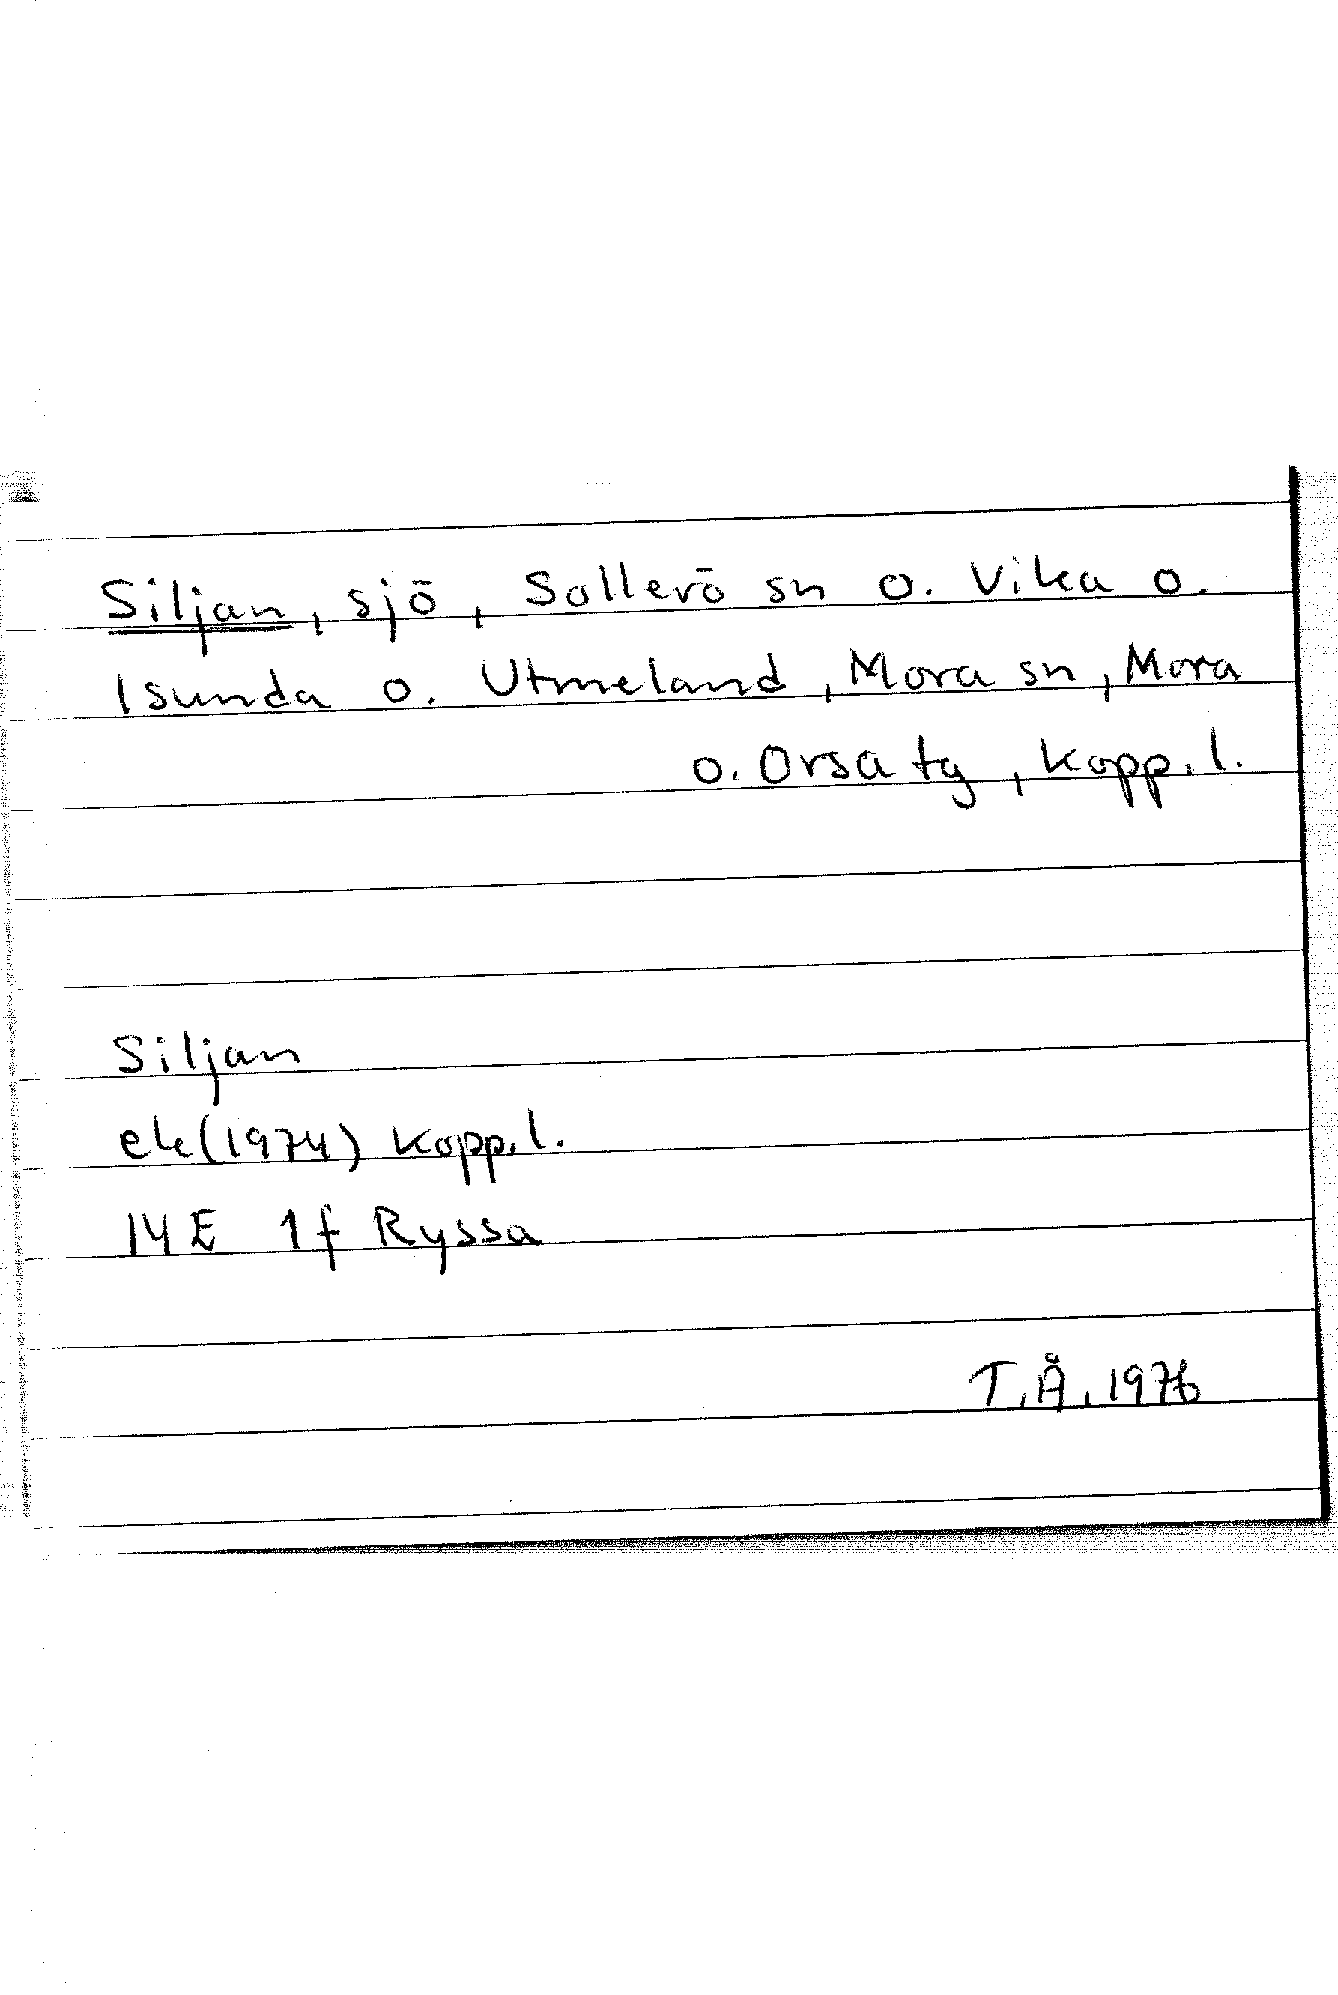 Siljan, sjö, Sollerö sn o. Vika o.
Isunda o. Utmeland, Mora sn, Mora
o. Orsa tg, Kopp. l.
Siljan
ek(1974) Kopp. l.
14 E 1f Ryssa
T.Å. 1976